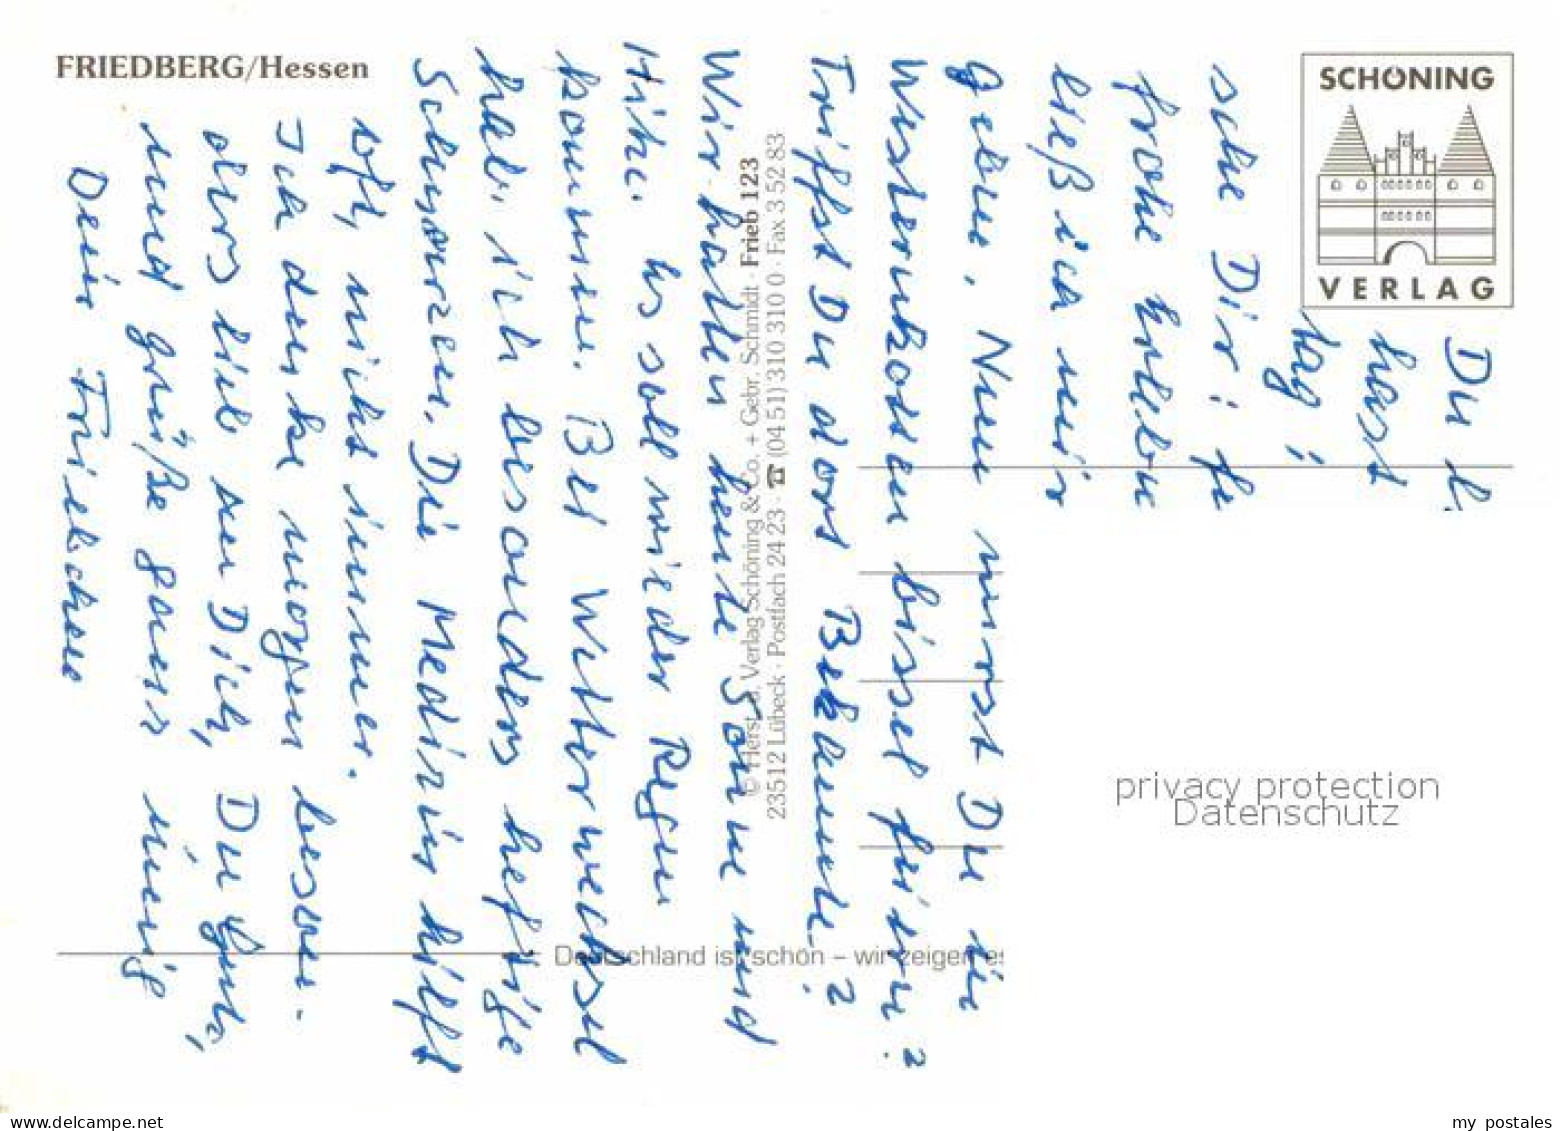 FRIEDBERG/Hessen
SCHÖNING
VERLAG
© Herst. u. Verlag Schöning & Co. + Gebr. Schmidt · Frieb 123
23512 Lübeck · Postfach 24 23 · ☎ (04 51) 310 310 0 · Fax 3 52 83
Deutschland ist schön – wir zeigen es
Du l.
hast
tag!
sche Dir! Je
frohe
ließ ich mir
geben. Nun wirst Du in
Westernkotten bissel feiern?
Triffst Du dort Bekannte?
Wir hatten heute Sonne und
Hitze. Es soll wieder Regen
kommen. Bei Wetterwechsel
hab' ich besonders heftige
Schmerzen. Die Medizin hilft
oft, nicht immer.
Ich denke morgen beson-
ders lieb an Dich, Du Gute,
und grüße ganz innig
Dein Friedchen
privacy protection
Datenschutz
my postales